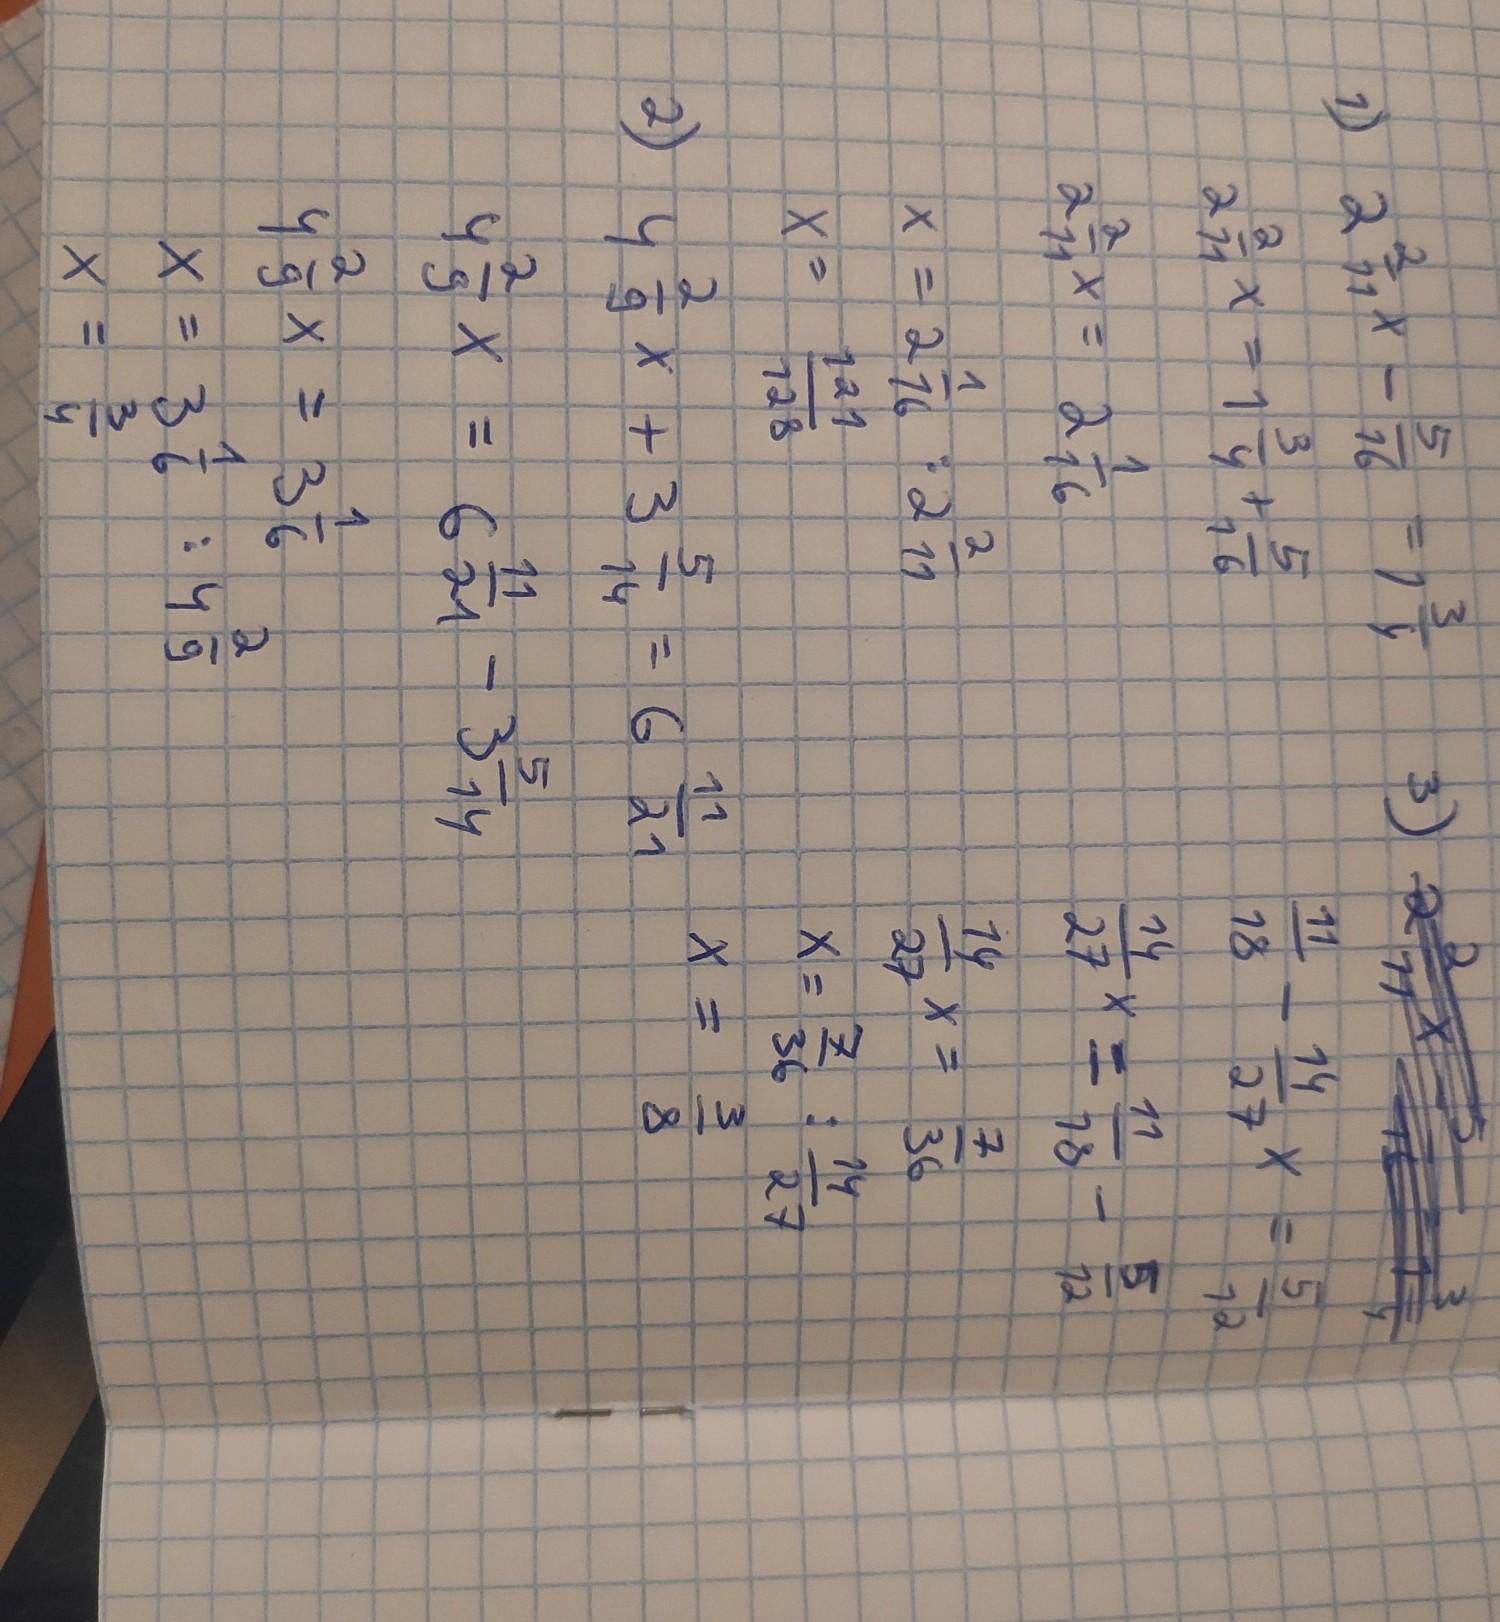 1) 2 2/11 x - 5/16 = 1 3/4
2 2/11 x = 1 3/4 + 5/16
2 2/11 x = 2 1/16
x = 2 1/16 : 2 2/11
x = 121/128
2) 4 2/9 x + 3 5/14 = 6 11/21
4 2/9 x = 6 11/21 - 3 5/14
4 2/9 x = 3 1/6
x = 3 1/6 : 4 2/9
x = 3/4
3)
11/18 - 14/27 x = 5/12
14/27 x = 11/18 - 5/12
14/27 x = 7/36
x = 7/36 : 14/27
x = 3/8